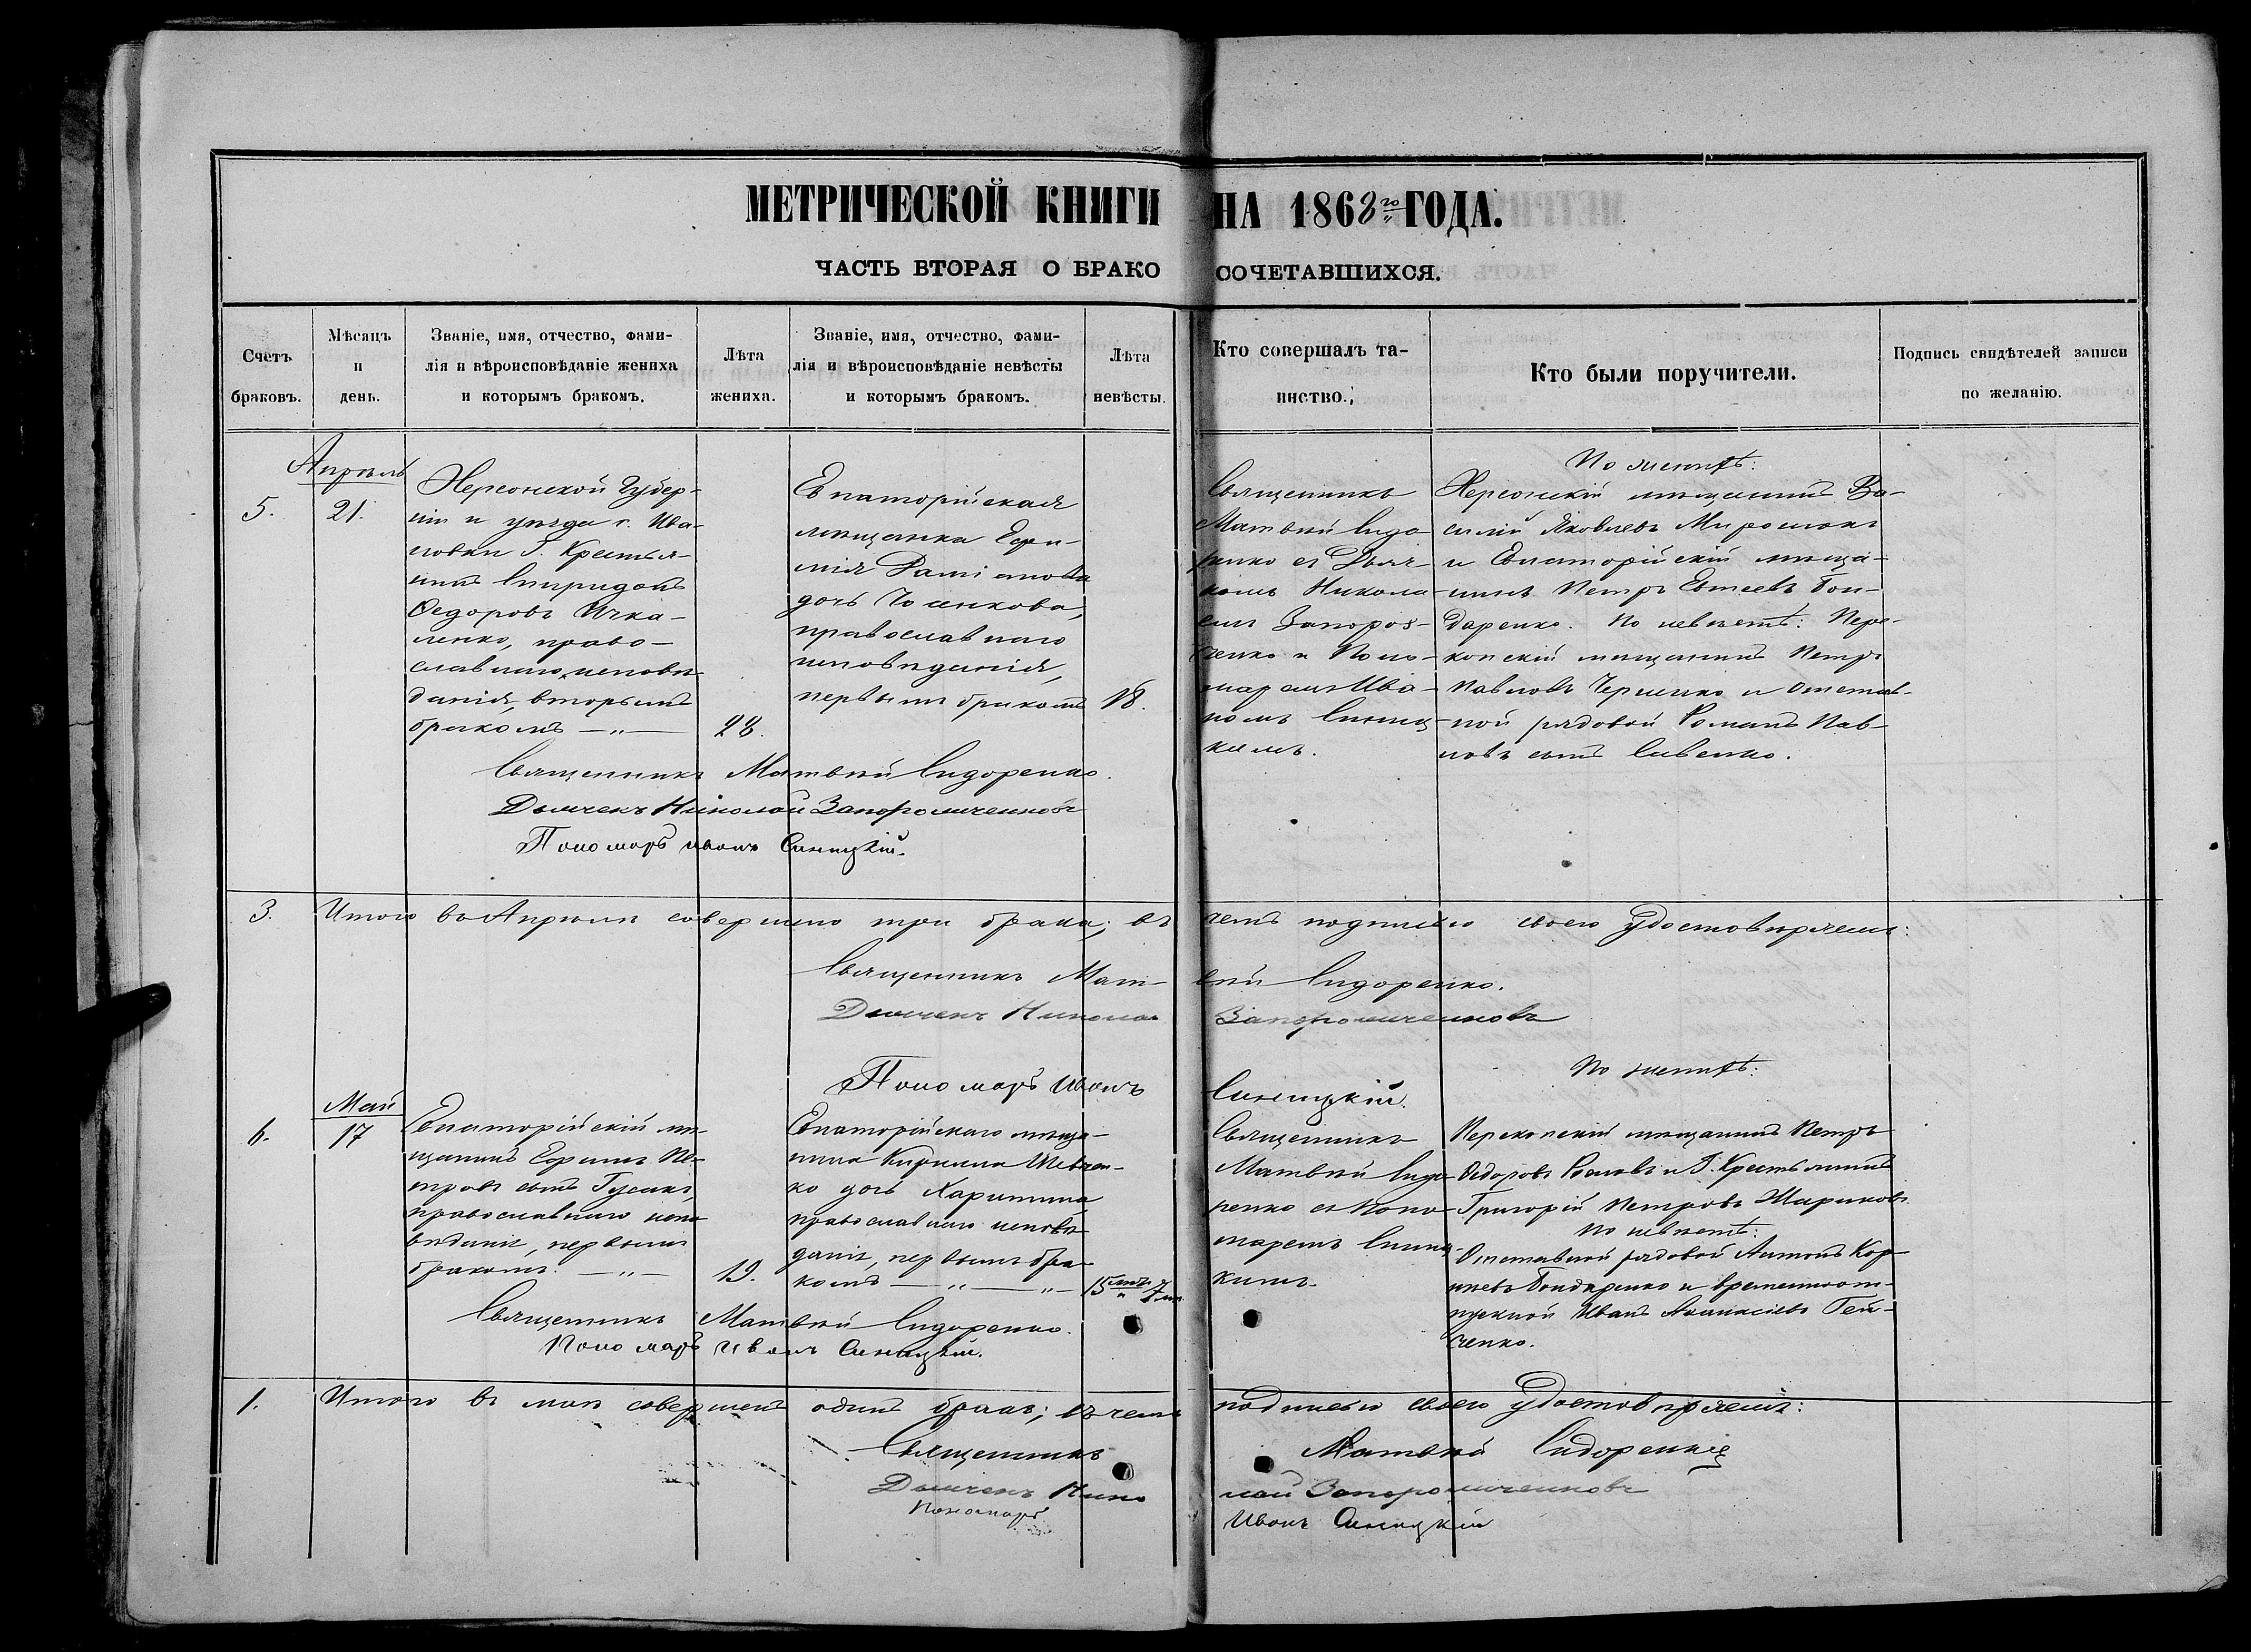 МЕТРИЧЕСКОЙ КНИГИ НА 1868го ГОДА.
ЧАСТЬ ВТОРАЯ О БРАКОСОЧЕТАВШИХСЯ.
Счетъ браковъ.
Мѣсяцъ и день.
Званіе, имя, отчество, фами-
лія и вѣроисповѣданіе жениха
и которымъ бракомъ.
Лѣта
жениха.
Званіе, имя, отчество, фами-
лія и вѣроисповѣданіе невѣсты
и которымъ бракомъ.
Лѣта
невѣсты.
Кто совершалъ та-
инство.
Кто были поручители.
Подпись свидѣтелей записи
по желанію.
5.
Апрѣль
21.
Херсонской Губер-
ніи и уѣзда с. Ива-
новки Г. Крестья-
нинъ Спиридонъ
Ѳедоровъ Ичка-
ленко, право-
славнаго исповѣ-
данія, вторымъ
бракомъ —„—
28.
Евпаторійская
мѣщанка Ефи-
мія Даміанова
дочь
православнаго
исповѣданія,
первымъ бракомъ
18.
Священникъ
Матвѣй Сидо-
ренко съ Дьяч-
комъ Никола-
емъ Запорож-
ченко и Поно-
маремъ Ива-
номъ Синиц-
кимъ.
По женихѣ:
Херсонскій мѣщанинъ Ва-
силій Яковлевъ Мирошнкъ
и Евпаторійскій мѣща-
нинъ Петръ Евтеевъ Бон-
даренко. По невѣстѣ: Пере-
копскій мѣщанинъ Петръ
Павловъ Черненко и отстав-
ной рядовой Романъ Пав-
ловъ сынъ Савенко.
Священникъ Матвѣй Сидоренко.
Дьячекъ Николай Запорожченковъ
Пономарь Иванъ Синицкій.
3.
Итого въ Апрѣлѣ совершено три брака; въ чемъ подписью своею удостовѣряемъ:
Священникъ Матвѣй Сидоренко.
Дьячекъ Николай Запорожченковъ
Пономарь Иванъ Синицкій.
6.
Май
17
Евпаторійскій мѣ-
щанинъ Ефимъ Пе-
тровъ сынъ Гусакъ,
православнаго испо-
вѣданія, первымъ
бракомъ. —„—
19.
Евпаторійскаго мѣща-
нина Кирилла Шевчен-
ко дочь Харитина,
православнаго исповѣ-
данія, первымъ бра-
комъ —„—„—
15 лѣтъ 7 м.
Священникъ
Матвѣй Сидо-
ренко съ Поно-
маремъ Синиц-
кимъ.
По женихѣ:
Перекопскій мѣщанинъ Петръ
Ѳедоровъ и Г. Крестьянинъ
Григорій Петровъ Шариковъ.
По невѣстѣ:
Отставной рядовой Антонъ Кор-
нѣевъ Бондаренко и временноот-
пускной Иванъ Аѳанасіевъ Гей-
ченко.
Священникъ Матвѣй Сидоренко.
Пономарь Иванъ Синицкій.
1.
Итого въ маѣ совершенъ одинъ бракъ; въ чемъ подписью своею удостовѣряемъ:
Священникъ Матвѣй Сидоренко
Дьячекъ Николай Запорожченковъ
Пономарь Иванъ Синицкій